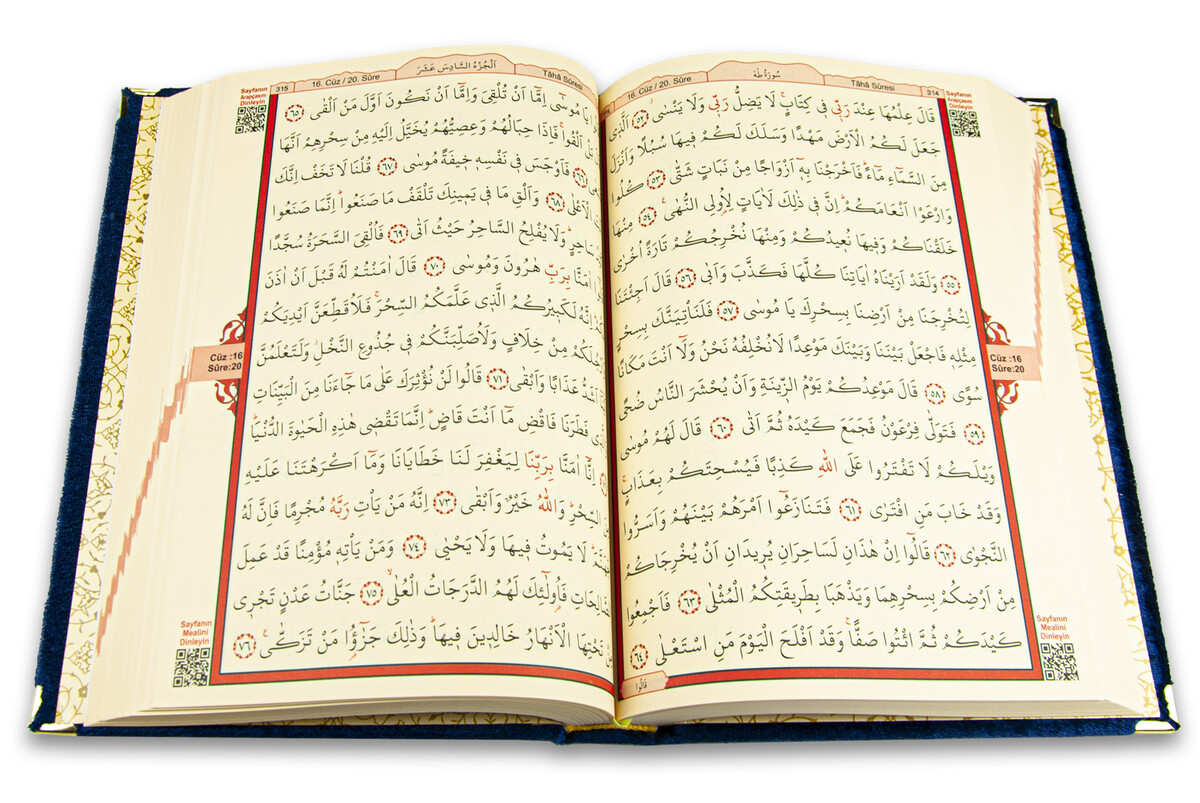 16. Cüz / 20. Sûre
سُورَةُ طٰهٰ
Tâhâ Sûresi
314
Sayfanın
Arapçasını
Dinleyin
قَالَ عِلْمُهَا عِنْدَ رَبّ۪ي ف۪ي كِتَابٍۚ لَا يَضِلُّ رَبّ۪ي وَلَا يَنْسٰىۘ ﴿٥٢﴾ اَلَّذ۪ي
جَعَلَ لَكُمُ الْاَرْضَ مَهْدًا وَسَلَكَ لَكُمْ ف۪يهَا سُبُلًا وَاَنْزَلَ
مِنَ السَّمَٓاءِ مَٓاءًۜ فَاَخْرَجْنَا بِه۪ٓ اَزْوَاجًا مِنْ نَبَاتٍ شَتّٰى ﴿٥٣﴾ كُلُوا
وَارْعَوْا اَنْعَامَكُمْۜ اِنَّ ف۪ي ذٰلِكَ لَاٰيَاتٍ لِاُو۬لِي النُّهٰى۟ ﴿٥٤﴾ مِنْهَا
خَلَقْنَاكُمْ وَف۪يهَا نُع۪يدُكُمْ وَمِنْهَا نُخْرِجُكُمْ تَارَةً اُخْرٰى
﴿٥٥﴾ وَلَقَدْ اَرَيْنَاهُ اٰيَاتِنَا كُلَّهَا فَكَذَّبَ وَاَبٰى ﴿٥٦﴾ قَالَ اَجِئْتَنَا
لِتُخْرِجَنَا مِنْ اَرْضِنَا بِسِحْرِكَ يَا مُوسٰى ﴿٥٧﴾ فَلَنَأْتِيَنَّكَ بِسِحْرٍ
مِثْلِه۪ فَاجْعَلْ بَيْنَنَا وَبَيْنَكَ مَوْعِدًا لَا نُخْلِفُهُ نَحْنُ وَلَٓا اَنْتَ مَكَانًا
سُوًى ﴿٥٨﴾ قَالَ مَوْعِدُكُمْ يَوْمُ الزّ۪ينَةِ وَاَنْ يُحْشَرَ النَّاسُ ضُحًى
﴿٥٩﴾ فَتَوَلّٰى فِرْعَوْنُ فَجَمَعَ كَيْدَهُ ثُمَّ اَتٰى ﴿٦٠﴾ قَالَ لَهُمْ مُوسٰى
وَيْلَكُمْ لَا تَفْتَرُوا عَلَى اللّٰهِ كَذِبًا فَيُسْحِتَكُمْ بِعَذَابٍۚ
وَقَدْ خَابَ مَنِ افْتَرٰى ﴿٦١﴾ فَتَنَازَعُٓوا اَمْرَهُمْ بَيْنَهُمْ وَاَسَرُّوا
النَّجْوٰى ﴿٦٢﴾ قَالُٓوا اِنْ هٰذَانِ لَسَاحِرَانِ يُر۪يدَانِ اَنْ يُخْرِجَاكُمْ
مِنْ اَرْضِكُمْ بِسِحْرِهِمَا وَيَذْهَبَا بِطَر۪يقَتِكُمُ الْمُثْلٰى ﴿٦٣﴾ فَاَجْمِعُوا
كَيْدَكُمْ ثُمَّ ائْتُوا صَفًّاۚ وَقَدْ اَفْلَحَ الْيَوْمَ مَنِ اسْتَعْلٰى ﴿٦٤﴾
قَالُوا
Cüz :16
Sûre:20
Sayfanın
Mealini
Dinleyin
315
16. Cüz / 20. Sûre
اَلْجُزْءُ السَّادِسَ عَشَرَ
Tâhâ Sûresi
Sayfanın
Arapçasını
Dinleyin
يَا مُوسٰٓى اِمَّٓا اَنْ تُلْقِيَ وَاِمَّٓا اَنْ نَكُونَ اَوَّلَ مَنْ اَلْقٰى ﴿٦٥﴾
بَلْ اَلْقُواۚ فَاِذَا حِبَالُهُمْ وَعِصِيُّهُمْ يُخَيَّلُ اِلَيْهِ مِنْ سِحْرِهِمْ اَنَّهَا
﴿٦٦﴾ فَاَوْجَسَ ف۪ي نَفْسِه۪ خ۪يفَةً مُوسٰى ﴿٦٧﴾ قُلْنَا لَا تَخَفْ اِنَّكَ
الْاَعْلٰى ﴿٦٨﴾ وَاَلْقِ مَا ف۪ي يَم۪ينِكَ تَلْقَفْ مَا صَنَعُواۜ اِنَّمَا صَنَعُوا
سَاحِرٍۜ وَلَا يُفْلِحُ السَّاحِرُ حَيْثُ اَتٰى ﴿٦٩﴾ فَاُلْقِيَ السَّحَرَةُ سُجَّدًا
اٰمَنَّا بِرَبِّ هٰرُونَ وَمُوسٰى ﴿٧٠﴾ قَالَ اٰمَنْتُمْ لَهُ قَبْلَ اَنْ اٰذَنَ
اِنَّهُ لَكَب۪يرُكُمُ الَّذ۪ي عَلَّمَكُمُ السِّحْرَۚ فَلَاُقَطِّعَنَّ اَيْدِيَكُمْ
مِنْ خِلَافٍ وَلَاُصَلِّبَنَّكُمْ ف۪ي جُذُوعِ النَّخْلِۘ وَلَتَعْلَمُنَّ
عَذَابًا وَاَبْقٰى ﴿٧١﴾ قَالُوا لَنْ نُؤْثِرَكَ عَلٰى مَا جَٓاءَنَا مِنَ الْبَيِّنَاتِ
فَطَرَنَا فَاقْضِ مَٓا اَنْتَ قَاضٍۜ اِنَّمَا تَقْض۪ي هٰذِهِ الْحَيٰوةَ الدُّنْيَاۜ
اِنَّٓا اٰمَنَّا بِرَبِّنَا لِيَغْفِرَ لَنَا خَطَايَانَا وَمَٓا اَكْرَهْتَنَا عَلَيْهِ
السِّحْرِۜ وَاللّٰهُ خَيْرٌ وَاَبْقٰى ﴿٧٣﴾ اِنَّهُ مَنْ يَأْتِ رَبَّهُ مُجْرِمًا فَاِنَّ لَهُ
لَا يَمُوتُ ف۪يهَا وَلَا يَحْيٰى ﴿٧٤﴾ وَمَنْ يَأْتِه۪ مُؤْمِنًا قَدْ عَمِلَ
فَاُو۬لٰٓئِكَ لَهُمُ الدَّرَجَاتُ الْعُلٰىۙ ﴿٧٥﴾ جَنَّاتُ عَدْنٍ تَجْر۪ي
تَحْتِهَا الْاَنْهَارُ خَالِد۪ينَ ف۪يهَاۜ وَذٰلِكَ جَزٰٓؤُا مَنْ تَزَكّٰى۟ ﴿٧٦﴾
Cüz :16
Sûre:20
Sayfanın
Mealini
Dinleyin